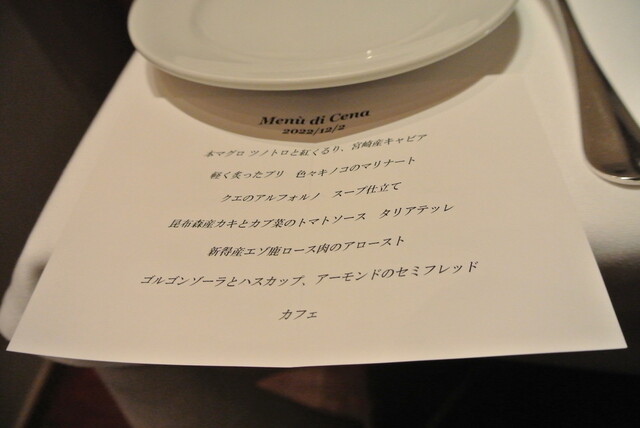 Menù di Cena
2022/12/2
本マグロ ツノトロと紅くるり、宮崎産キャビア
軽く炙ったブリ　色々キノコのマリナート
クエのアルフォルノ　スープ仕立て
昆布森産カキとカブ菜のトマトソース　タリアテッレ
新得産エゾ鹿ロース肉のアロースト
ゴルゴンゾーラとハスカップ、アーモンドのセミフレッド
カフェ